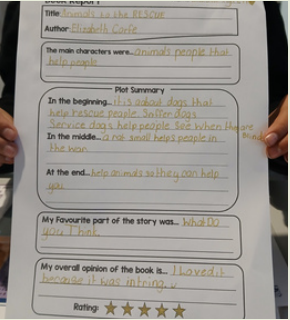 Book Report
Title: Animals to the RESCUE
Author: Elizabeth Corfe
The main characters were... animals people that
help people
Plot Summary
In the beginning... it is about dogs that
help rescue people. Sniffer dogs
Service dogs help people see when they are
blind
In the middle... a rat small helps people in
the war
At the end... help animals so they can help
you
My Favourite part of the story was... What Do
you Think
My overall opinion of the book is... I loved it
because it was intring.
Rating: